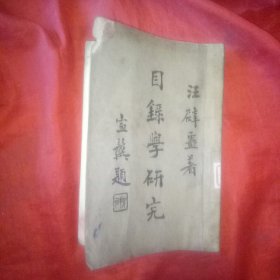 汪辟畺著
目錄學研究
宣龔題